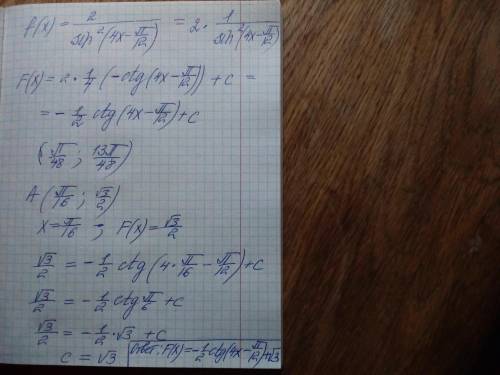 f(x) = 2/sin²(4x - π/12) = 2 · 1/sin²(4x - π/12)
F(x) = 2 · 1/4 (-ctg(4x - π/12)) + C =
= - 1/2 ctg(4x - π/12) + C
(π/48 ; 13π/48)
A(π/16 ; √3/2)
x = π/16 ; F(x) = √3/2
√3/2 = - 1/2 ctg(4 · π/16 - π/12) + C
√3/2 = - 1/2 ctg π/6 + C
√3/2 = - 1/2 · √3 + C
C = √3
Ответ: F(x) = - 1/2 ctg(4x - π/12) + √3